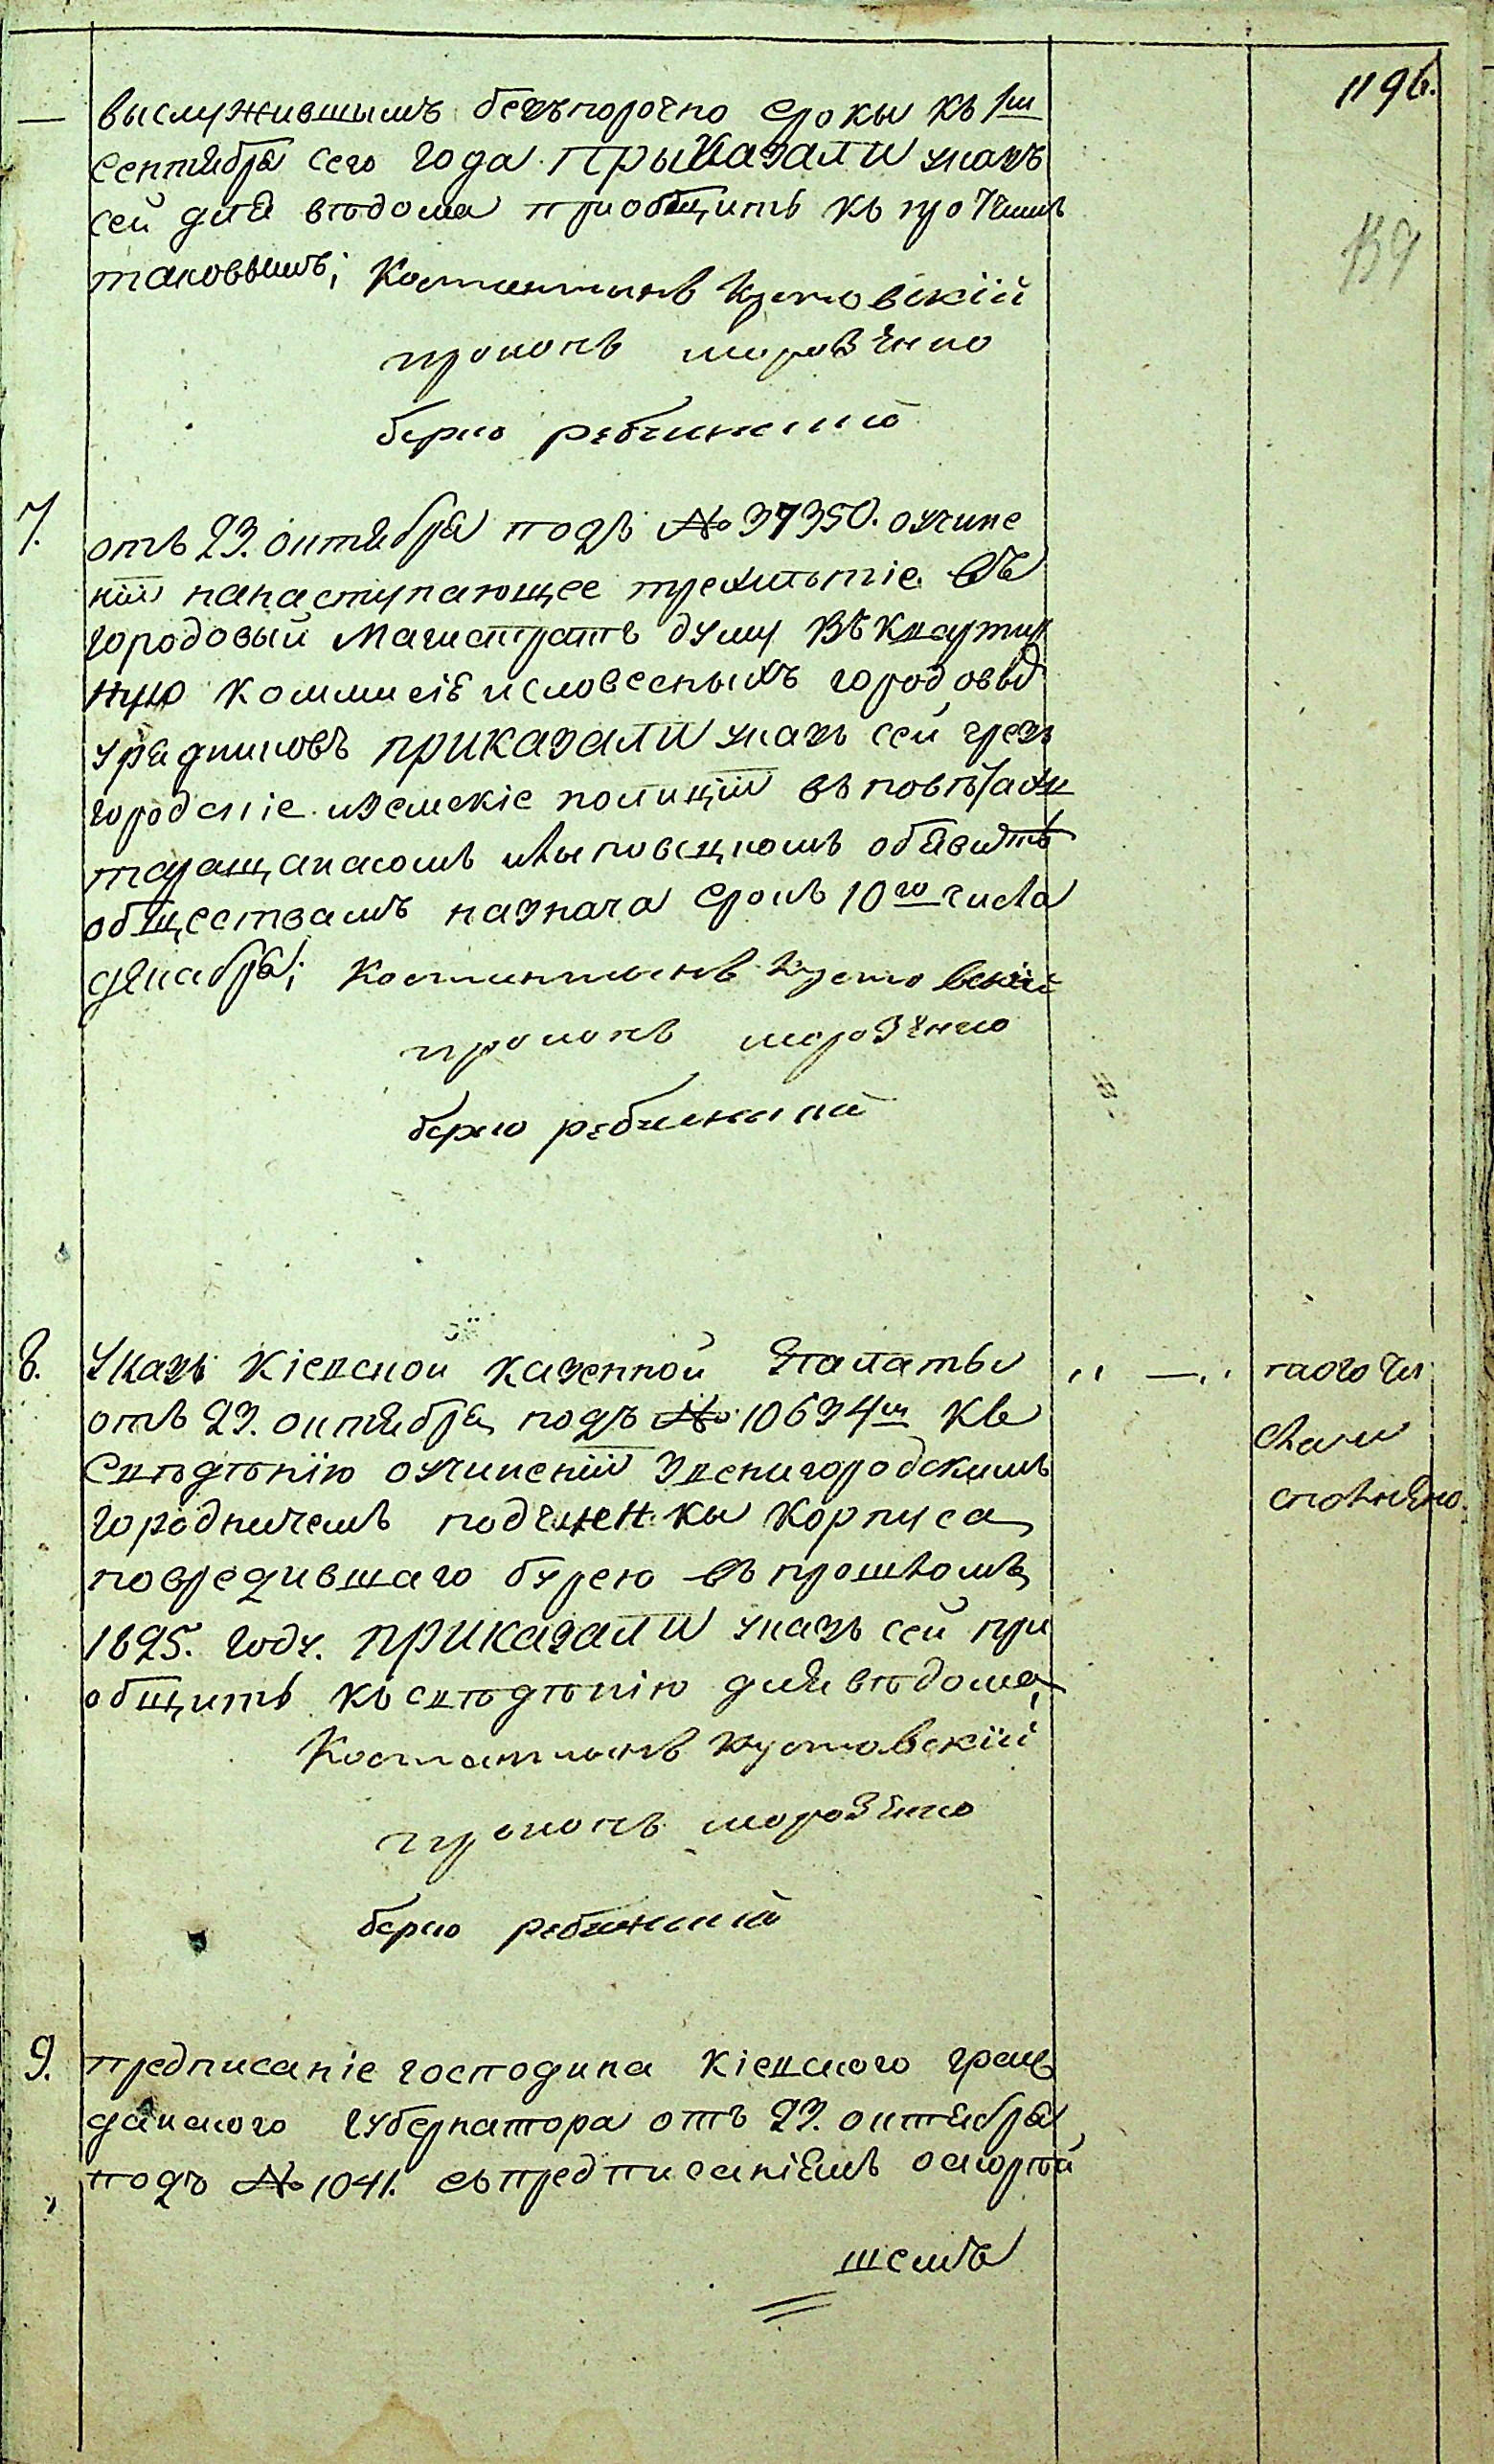 1196.
139
выслужившымъ безъпорочно сроки къ 1му
сентября сего года. Прыказали указъ
сей для вѣдома приобщить къ прочимъ
таковымъ; Костантинъ Кутовскій
прокопъ морозенко
берко рабинский
7. отъ 23. октября подъ № 37350. оучине
ніи нанаступающее трехлѣтіе въ
городовый Магистратъ думу въ Квартир
ную коммисіе исловесныхъ городовыхъ
урядниковъ приказали указъ сей чрезъ
городскіе иземскіе полиціи въ повѣтахъ
таращанскомъ илыповецкомъ обявить
обществамъ назнача срокъ 10го числа
декабря; Костинтинъ Кутовскій
прокопъ морозенко
берко рабинский
8. Указъ Кіевской казенной Палаты
отъ 23. октября подъ № 10634м къ
свѣдѣнію оучиненіи Звенигородскимъ
городничемъ подчиненки корпуса
повредившаго бурею въ прошломъ
1825. году. приказали указъ сей при
общить къ свѣдѣнію для вѣдома,
Костантинъ Кутовскій
прокопъ морозенко
берко рабинский
,, —,,
того чи
сла и
сполнено.
9. предписаніе господина Кіевского граж
данского губернатора отъ 23. октября
подъ № 1041. съ предписаніемъ оскорѣй
шемъ